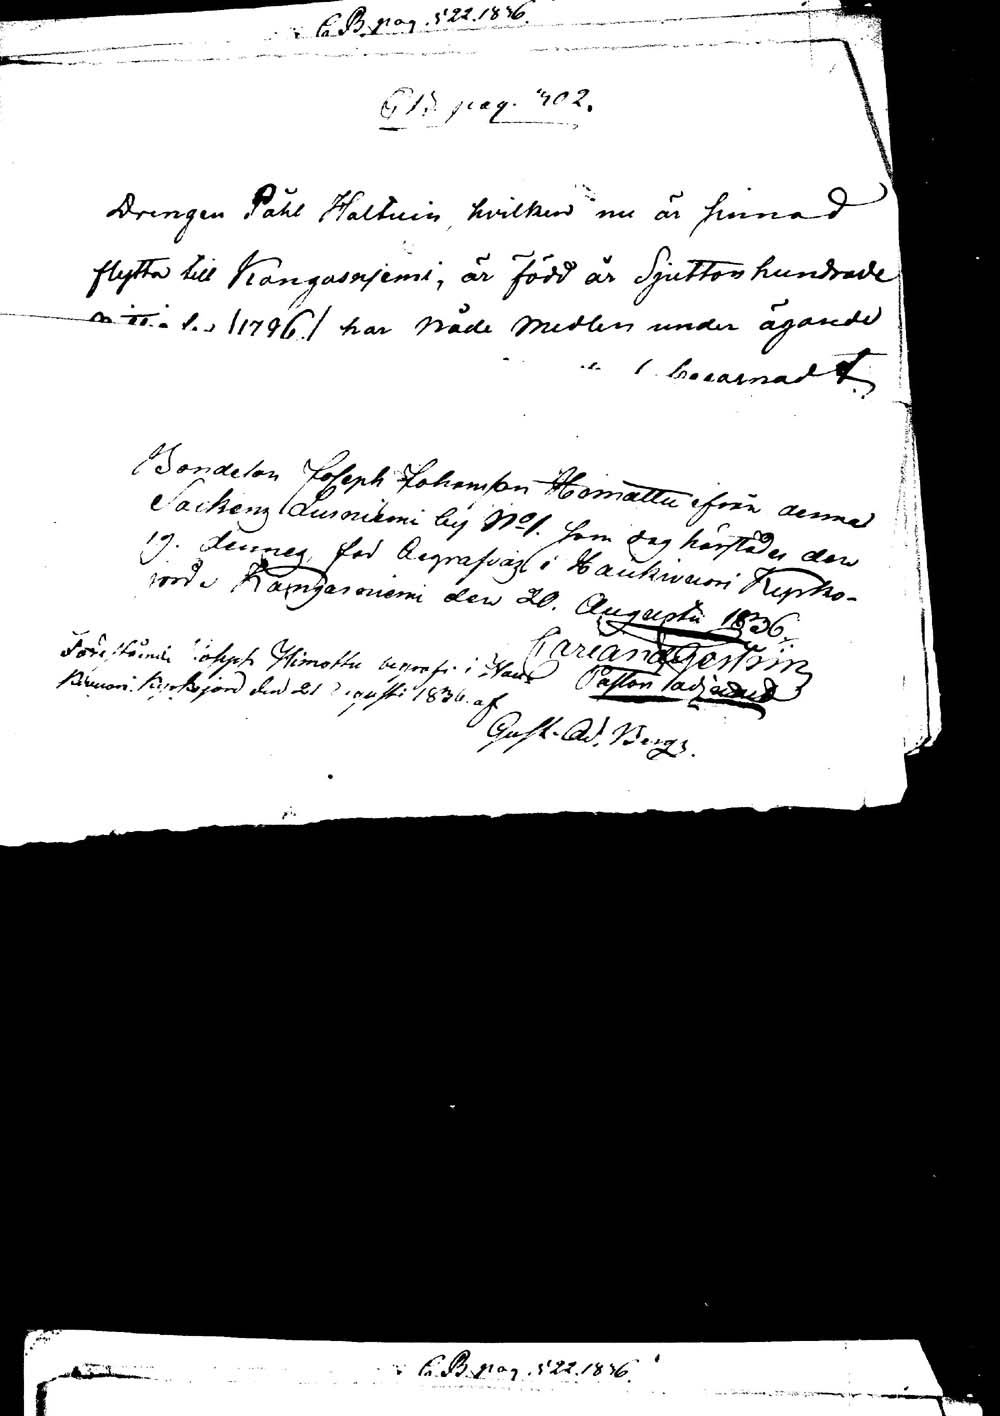 C B. pag. 522. 1836.
C B. pag. 402.
Drengen Påhl Haltuin, hvilken nu är sinnad
flytta till Kangasnjemi, är född år Sjuttonhundrade
(1796.) har Nåde Medlen under ägande
bevarnad
Bondeson Joseph Johansson Himattu ifrån denna
Sockens Lusniemi by No 1. som dog härstädes den
19. dennes, får begrafvas i Haukivuori Kyrko-
jord. Kangasniemi den 20. Augusti 1836.
Pastors adjunct
Joseph Himottu begrafd i Hauki
Kivuori Kyrkojord den 21 Augusti 1836. af
Gust. Ad. Bergs.
C B. pag. 522. 1836.